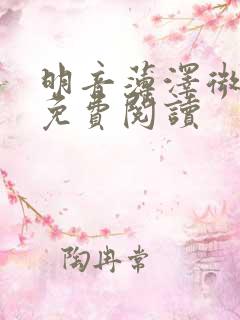 明音薄澤微
免費閱讀
陶冉常